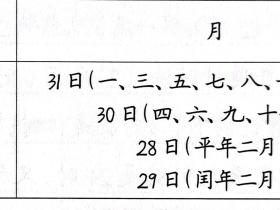 月
31日(一、三、五、七、八、
30日(四、六、九、十
28日(平年二月
29日(闰年二月